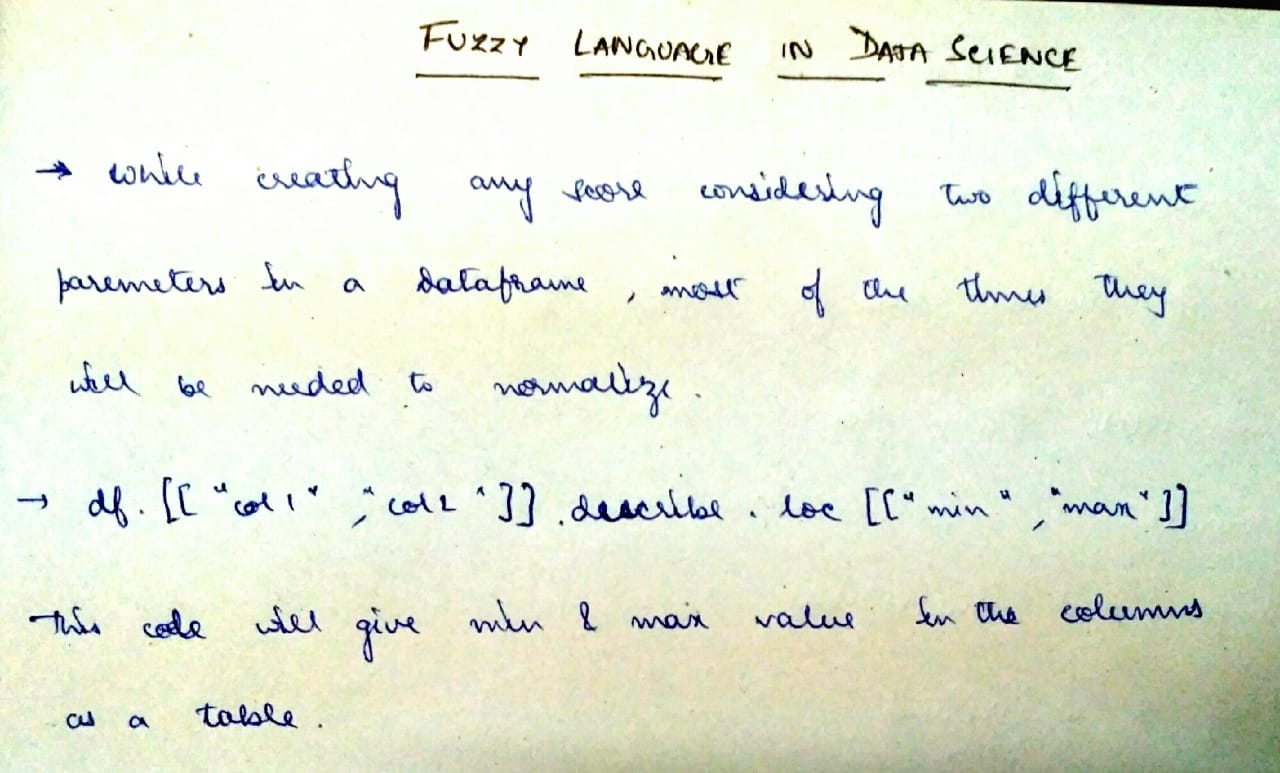 FUZZY LANGUAGE IN DATA SCIENCE
→ while creating any score considering two different
paremeters in a dataframe, most of the times they
will be needed to normalize.
→ df. [["col1", "col2"]]. describe. loc [["min", "max"]]
This code will give min & max value in the columns
as a table.